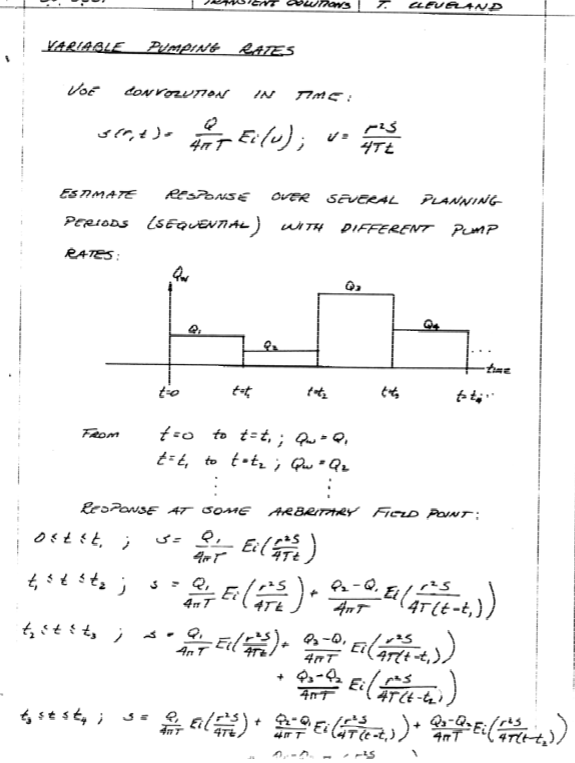 TRANSIENT SOLUTIONS T. CLEVELAND
VARIABLE PUMPING RATES
USE CONVOLUTION IN TIME:
s(r,t) = Q/4πT Ei(u); u = r²S/4Tt
ESTIMATE RESPONSE OVER SEVERAL PLANNING
PERIODS (SEQUENTIAL) WITH DIFFERENT PUMP
RATES:
Qw
Q₁ Q₂ Q₃ Q₄ ...
time
t=0 t=t₁ t=t₂ t=t₃ t=t₄
FROM t=0 to t=t₁; Qw=Q₁
t=t₁ to t=t₂; Qw=Q₂
⋮ ⋮
RESPONSE AT SOME ARBRITARY FIELD POINT:
0≤t≤t₁; s = Q₁/4πT Ei(r²S/4Tt)
t₁≤t≤t₂; s = Q₁/4πT Ei(r²S/4Tt) + Q₂-Q₁/4πT Ei(r²S/4T(t-t₁))
t₂≤t≤t₃; s = Q₁/4πT Ei(r²S/4Tt) + Q₂-Q₁/4πT Ei(r²S/4T(t-t₁))
+ Q₃-Q₂/4πT Ei(r²S/4T(t-t₂))
t₃≤t≤t₄; s = Q₁/4πT Ei(r²S/4Tt) + Q₂-Q₁/4πT Ei(r²S/4T(t-t₁)) + Q₃-Q₂/4πT Ei(r²S/4T(t-t₂))